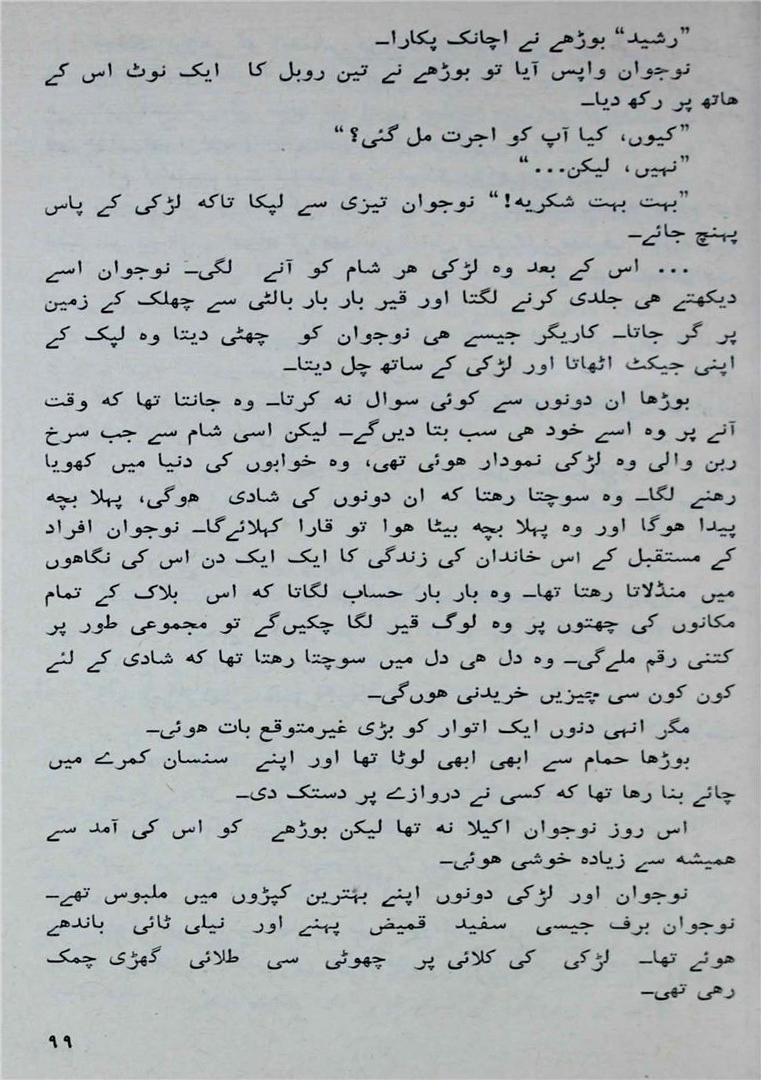 ”رشید“ بوڑھے نے اچانک پکارا۔
نوجوان واپس آیا تو بوڑھے نے تین روبل کا ایک نوٹ اس کے
ھاتھ پر رکھ دیا۔
”کیوں، کیا آپ کو اجرت مل گئی؟“
”نہیں، لیکن...“
”بہت بہت شکریہ!“ نوجوان تیزی سے لپکا تاکہ لڑکی کے پاس
پہنچ جائے۔
... اس کے بعد وہ لڑکی ھر شام کو آنے لگی۔ نوجوان اسے
دیکھتے ھی جلدی کرنے لگتا اور قیر بار بار بالٹی سے چھلک کے زمین
پر گر جاتا۔ کاریگر جیسے ھی نوجوان کو چھٹی دیتا وہ لپک کے
اپنی جیکٹ اٹھاتا اور لڑکی کے ساتھ چل دیتا۔
بوڑھا ان دونوں سے کوئی سوال نہ کرتا۔ وہ جانتا تھا کہ وقت
آنے پر وہ اسے خود ھی سب بتا دیں گے۔ لیکن اسی شام سے جب سرخ
ربن والی وہ لڑکی نمودار ھوئی تھی، وہ خوابوں کی دنیا میں کھویا
رھنے لگا۔ وہ سوچتا رھتا کہ ان دونوں کی شادی ھوگی، پہلا بچہ
پیدا ھوگا اور وہ پہلا بچہ بیٹا ھوا تو قارا کہلائے گا۔ نوجوان افراد
کے مستقبل کے اس خاندان کی زندگی کا ایک ایک دن اس کی نگاھوں
میں منڈلاتا رھتا تھا۔ وہ بار بار حساب لگاتا کہ اس بلاک کے تمام
مکانوں کی چھتوں پر وہ لوگ قیر لگا چکیں گے تو مجموعی طور پر
کتنی رقم ملے گی۔ وہ دل ھی دل میں سوچتا رھتا تھا کہ شادی کے لئے
کون کون سی چیزیں خریدنی ھوں گی۔
مگر انہی دنوں ایک اتوار کو بڑی غیرمتوقع بات ھوئی۔
بوڑھا حمام سے ابھی ابھی لوٹا تھا اور اپنے سنسان کمرے میں
چائے بنا رھا تھا کہ کسی نے دروازے پر دستک دی۔
اس روز نوجوان اکیلا نہ تھا لیکن بوڑھے کو اس کی آمد سے
ھمیشہ سے زیادہ خوشی ھوئی۔
نوجوان اور لڑکی دونوں اپنے بہترین کپڑوں میں ملبوس تھے۔
نوجوان برف جیسی سفید قمیض پہنے اور نیلی ٹائی باندھے
ھوئے تھا۔ لڑکی کی کلائی پر چھوٹی سی طلائی گھڑی چمک
رھی تھی۔
۹۹